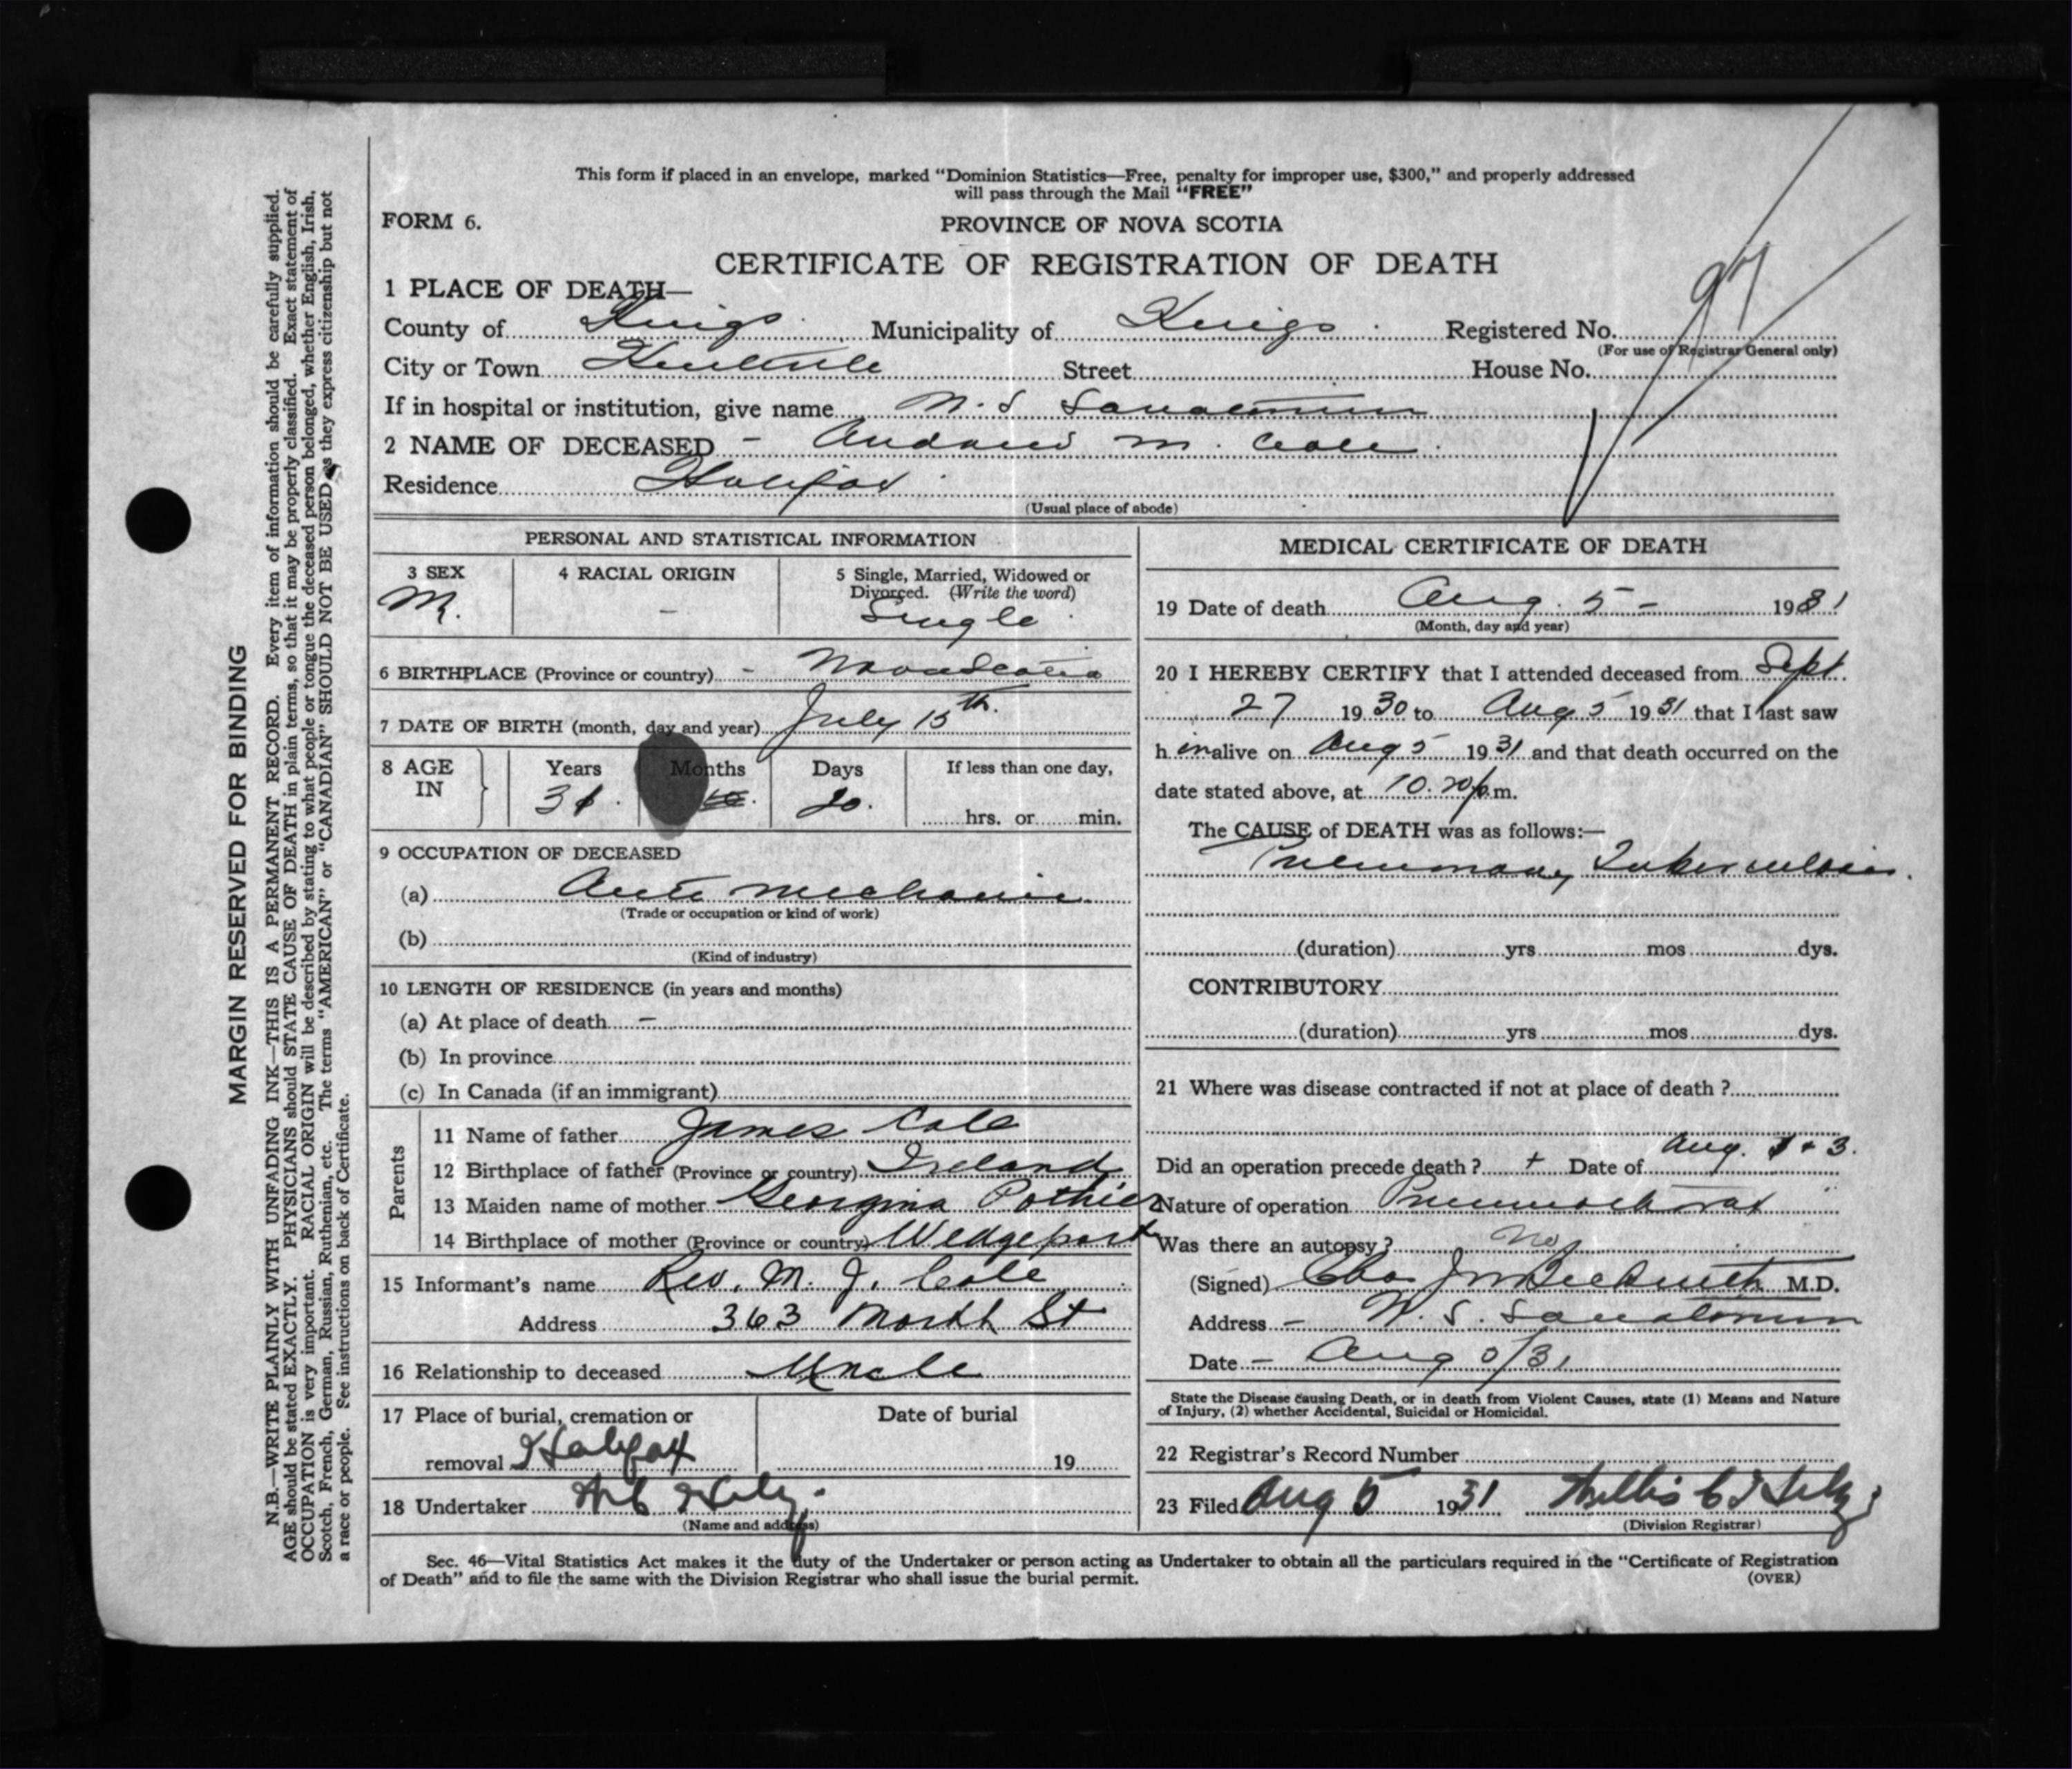 This form if placed in an envelope, marked “Dominion Statistics—Free, penalty for improper use, $300,” and properly addressed
will pass through the Mail “FREE”
FORM 6.
PROVINCE OF NOVA SCOTIA
CERTIFICATE OF REGISTRATION OF DEATH
1 PLACE OF DEATH—
County of Kings Municipality of Kings Registered No.
(For use of Registrar General only)
City or Town Kentville Street House No.
If in hospital or institution, give name N. S Sanatorium
2 NAME OF DECEASED - M. Cole
Residence Halifax
(Usual place of abode)
PERSONAL AND STATISTICAL INFORMATION
3 SEX
M.
4 RACIAL ORIGIN
-
5 Single, Married, Widowed or
Divorced. (Write the word)
Single
6 BIRTHPLACE (Province or country) - Nova Scotia
7 DATE OF BIRTH (month, day and year) July 15th.
8 AGE
IN
Years Months Days If less than one day,
31. 20.
hrs. or min.
9 OCCUPATION OF DECEASED
(a) Auto mechanic
(Trade or occupation or kind of work)
(b)
(Kind of industry)
10 LENGTH OF RESIDENCE (in years and months)
(a) At place of death -
(b) In province
(c) In Canada (if an immigrant)
Parents
11 Name of father James Cole
12 Birthplace of father (Province or country) Ireland
13 Maiden name of mother Georgina Pothier
14 Birthplace of mother (Province or country) Wedgeport
15 Informant's name Rev. M. J. Cole
Address 363 North St
16 Relationship to deceased Uncle
17 Place of burial, cremation or
removal Halifax
Date of burial
19
18 Undertaker
(Name and address)
MEDICAL CERTIFICATE OF DEATH
19 Date of death Aug. 5 - 1931
(Month, day and year)
20 I HEREBY CERTIFY that I attended deceased from Sept.
27 1930 to Aug 5 1931 that I last saw
h im alive on Aug 5 1931 and that death occurred on the
date stated above, at 10.20 p.m.
The CAUSE of DEATH was as follows:—
Pulmonary Tuberculosis.
(duration) yrs mos dys.
CONTRIBUTORY
(duration) yrs mos dys.
21 Where was disease contracted if not at place of death ?
Did an operation precede death ? + Date of Aug. 1 + 3.
Nature of operation Pneumothorax
Was there an autopsy ? no
(Signed) Beckwith M.D.
Address - N. S. Sanatorium
Date - Aug 5/31
State the Disease causing Death, or in death from Violent Causes, state (1) Means and Nature
of Injury, (2) whether Accidental, Suicidal or Homicidal.
22 Registrar's Record Number
23 Filed Aug 5 1931
(Division Registrar)
Sec. 46—Vital Statistics Act makes it the duty of the Undertaker or person acting as Undertaker to obtain all the particulars required in the “Certificate of Registration
of Death” and to file the same with the Division Registrar who shall issue the burial permit.
(OVER)
MARGIN RESERVED FOR BINDING
N.B.—WRITE PLAINLY WITH UNFADING INK—THIS IS A PERMANENT RECORD. Every item of information should be carefully supplied.
AGE should be stated EXACTLY. PHYSICIANS should STATE CAUSE OF DEATH in plain terms, so that it may be properly classified. Exact statement of
OCCUPATION is very important. RACIAL ORIGIN will be described by stating to what people or tongue the deceased person belonged, whether English, Irish,
Scotch, French, German, Russian, Ruthenian, etc. The terms “AMERICAN” or “CANADIAN” SHOULD NOT BE USED as they express citizenship but not
a race or people. See instructions on back of Certificate.